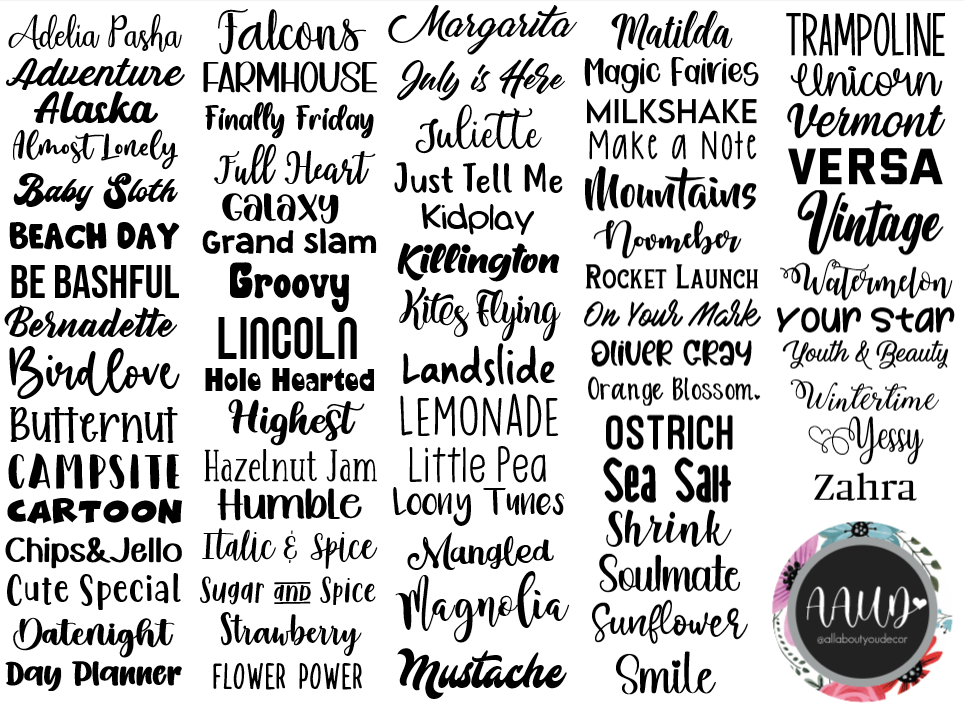 Adelia Pasha
Adventure
Alaska
Almost Lonely
Baby Sloth
BEACH DAY
BE BASHFUL
Bernadette
Birdlove
Butternut
CAMPSITE
CARTOON
Chips&Jello
Cute Special
Datenight
Day Planner
Falcons
FARMHOUSE
Finally Friday
Full Heart
GALAXY
Grand slam
Groovy
LINCOLN
Hole Hearted
Highest
Hazelnut Jam
Humble
Italic & Spice
Sugar and Spice
Strawberry
FLOWER POWER
Margarita
July is Here
Juliette
Just Tell Me
Kidplay
Killington
Kites Flying
Landslide
LEMONADE
Little Pea
Loony Tunes
Mangled
Magnolia
Mustache
Matilda
Magic Fairies
MILKSHAKE
Make a Note
Mountains
Novmeber
Rocket Launch
On Your Mark
Oliver Gray
Orange Blossom.
OSTRICH
Sea Salt
Shrink
Soulmate
Sunflower
Smile
TRAMPOLINE
Unicorn
Vermont
VERSA
Vintage
Watermelon
Your Star
Youth & Beauty
Wintertime
Yessy
Zahra
AAYD
@allaboutyoudecor